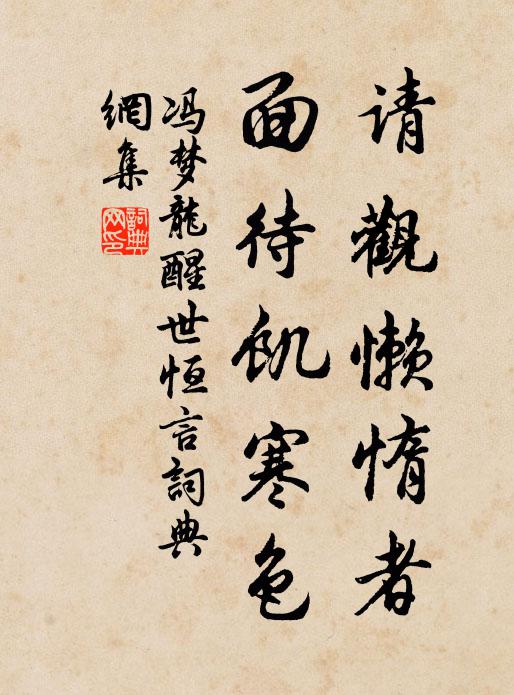 请觀懒惰者
面待饥寒色
冯梦龍醒世恒言詞典
網集
詞典
网印